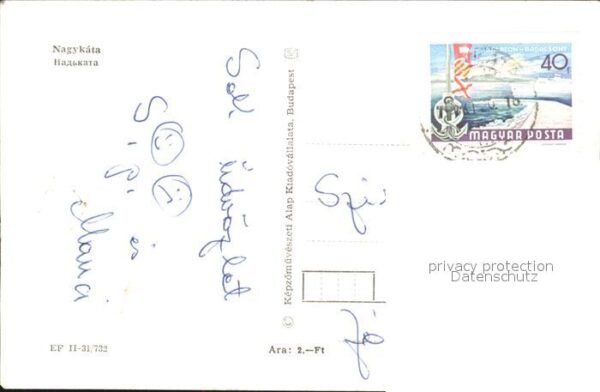 Nagykáta
Надьката
Sok üdvözlet
és
Manci
© Képzőművészeti Alap Kiadóvállalata, Budapest
EF II-31/732
Ara: 2.—Ft
BADACSONY
40f
MAGYAR POSTA
Szi
privacy protection
Datenschutz